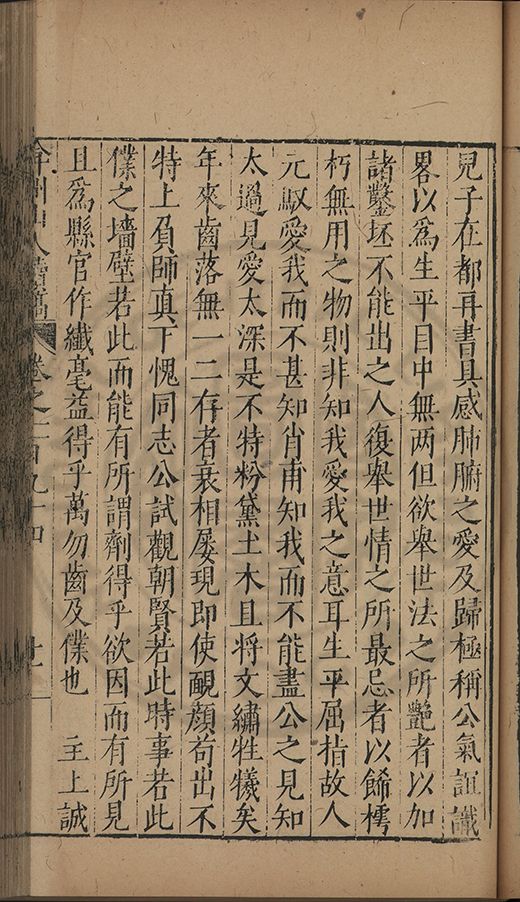 兒子在都再書具感肺腑之愛及歸極稱公氣誼識
畧以爲生平目中無两但欲舉世法之所艷者以加
諸鑿坯不能出之人復舉世情之所最忌者以餙樗
朽無用之物則非知我愛我之意耳生平屈指故人
元馭愛我而不甚知肖甫知我而不能盡公之見知
太過見愛太深是不特粉黛土木且将文繡牲犧矣
年來齒落無一二存者衰相屡現即使靦顔茍出不
特上負師真下愧同志公試觀朝賢若此時事若此
僕之墻壁若此而能有所謂劑得乎欲因而有所見
且爲縣官作纎毫益得乎萬勿齒及僕也　主上誠
弇州山人續稿　卷之一百九十四　十一